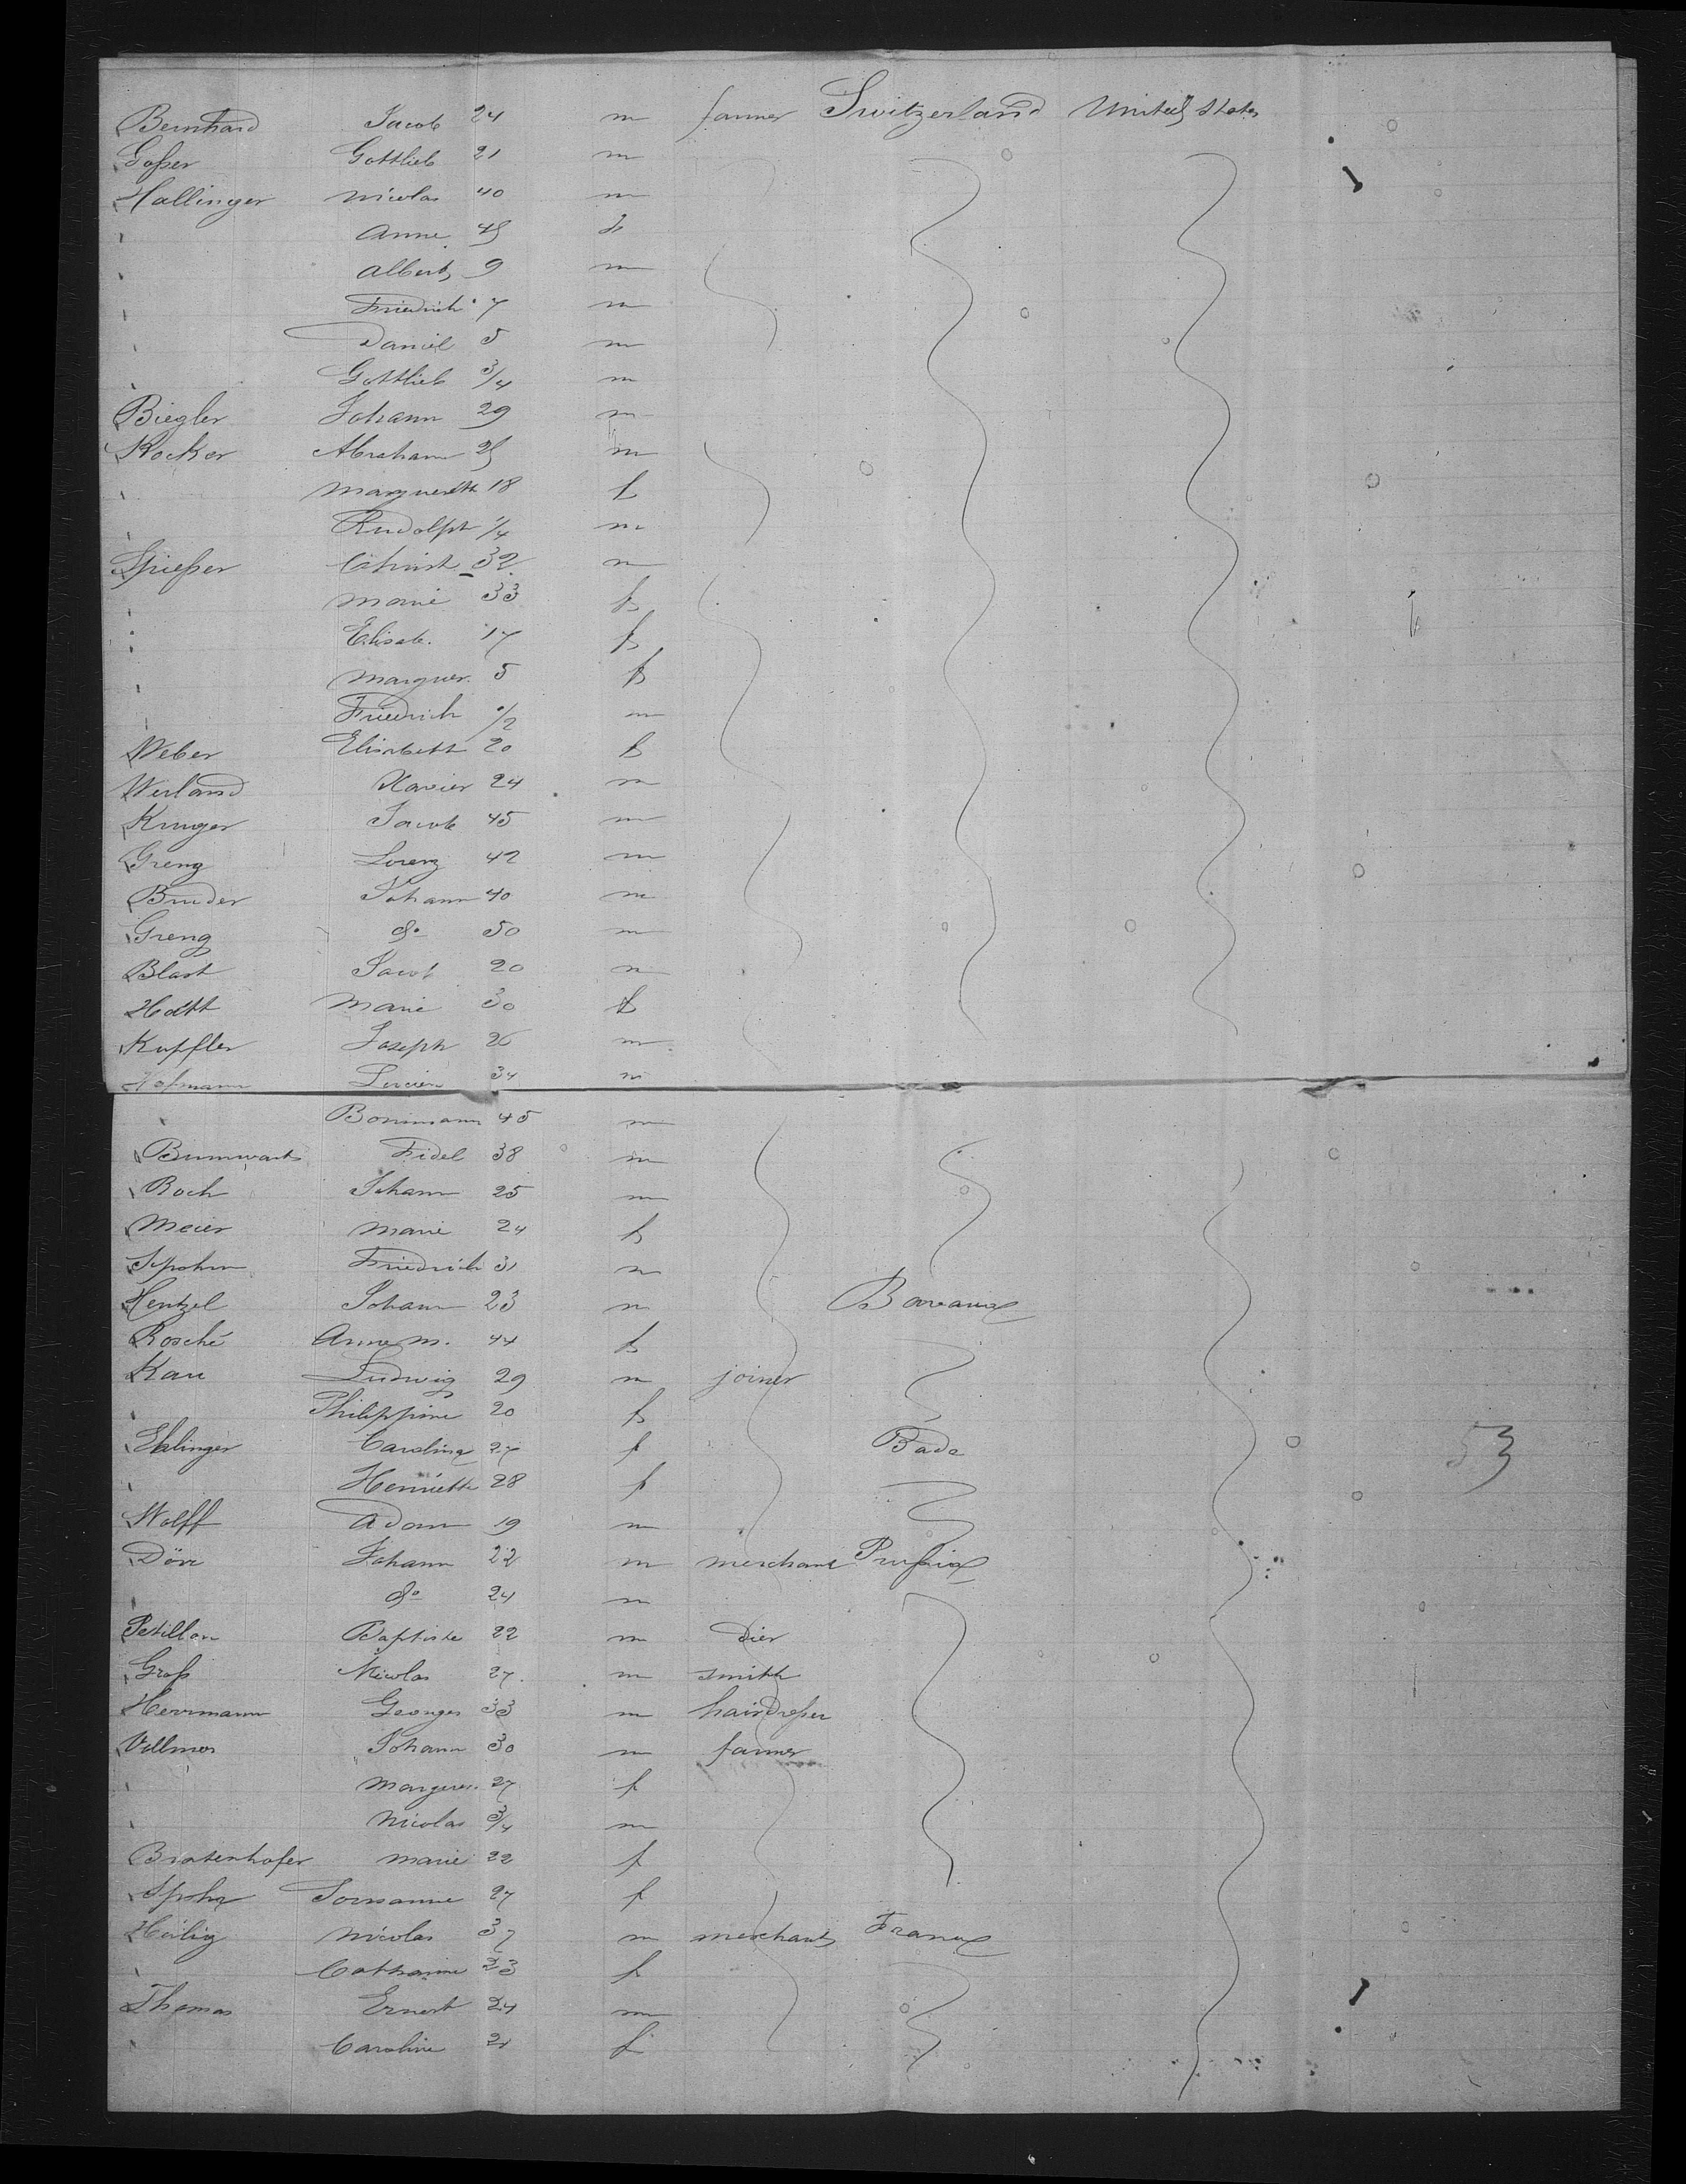 Bernhard Jacob 24 m farmer Switzerland United States
Goßer Gottlieb 21 m
Hallinger Nicolas 40 m
" Anne 45 f
" Albert 9 m
" Friedrich 7 m
" Daniel 5 m
" Gottlieb 3/4 m
Biegler Johann 29 m
Kocker Abraham 25 m
" Marguerith 18 f
" Rudolph 1/4 m
Spießer Christ. 32 m
" Marie 33 f
" Elisab. 17 f
" Marguer. 5 f
" Friedrich 1/2 m
Weber Elisabeth 20 f
Werland Xavier 24 m
Kruger Jacob 45 m
Greng Lorenz 42 m
Bruder Johann 40 m
Greng do 50 m
Blast Jacob 20 m
Hott Marie 30 f
Kuffler Joseph 26 m
Hofmann Lucien 34 m
" Bonimann 45 m
Fidel 38 m
Roch Johann 25 m
Meier Marie 24 f
Spohn Friedrich 31 m
Hentzel Johann 23 m
Rosché Anne M. 44 f
Kau Ludwig 29 m joiner
" Philippine 20 f
Eblinger Caroline 27 f Bade
" Henriette 28 f 53
Wolff Adam 19 m
Dörr Johann 22 m merchant Prußia
" do 24 m
Petillon Baptiste 22 m dier
Groß Nicolas 27 m smith
Herrmann Georges 33 m hairdreßer
Vollmer Johann 30 m farmer
" Marguer. 27 f
" Nicolas 3/4 m
Bratenhofer Marie 22 f
Spohr 27 f
Heilig Nicolas 37 m merchant France
" Catharine 23 f
Thomas Ernest 24 m
" Caroline 21 f